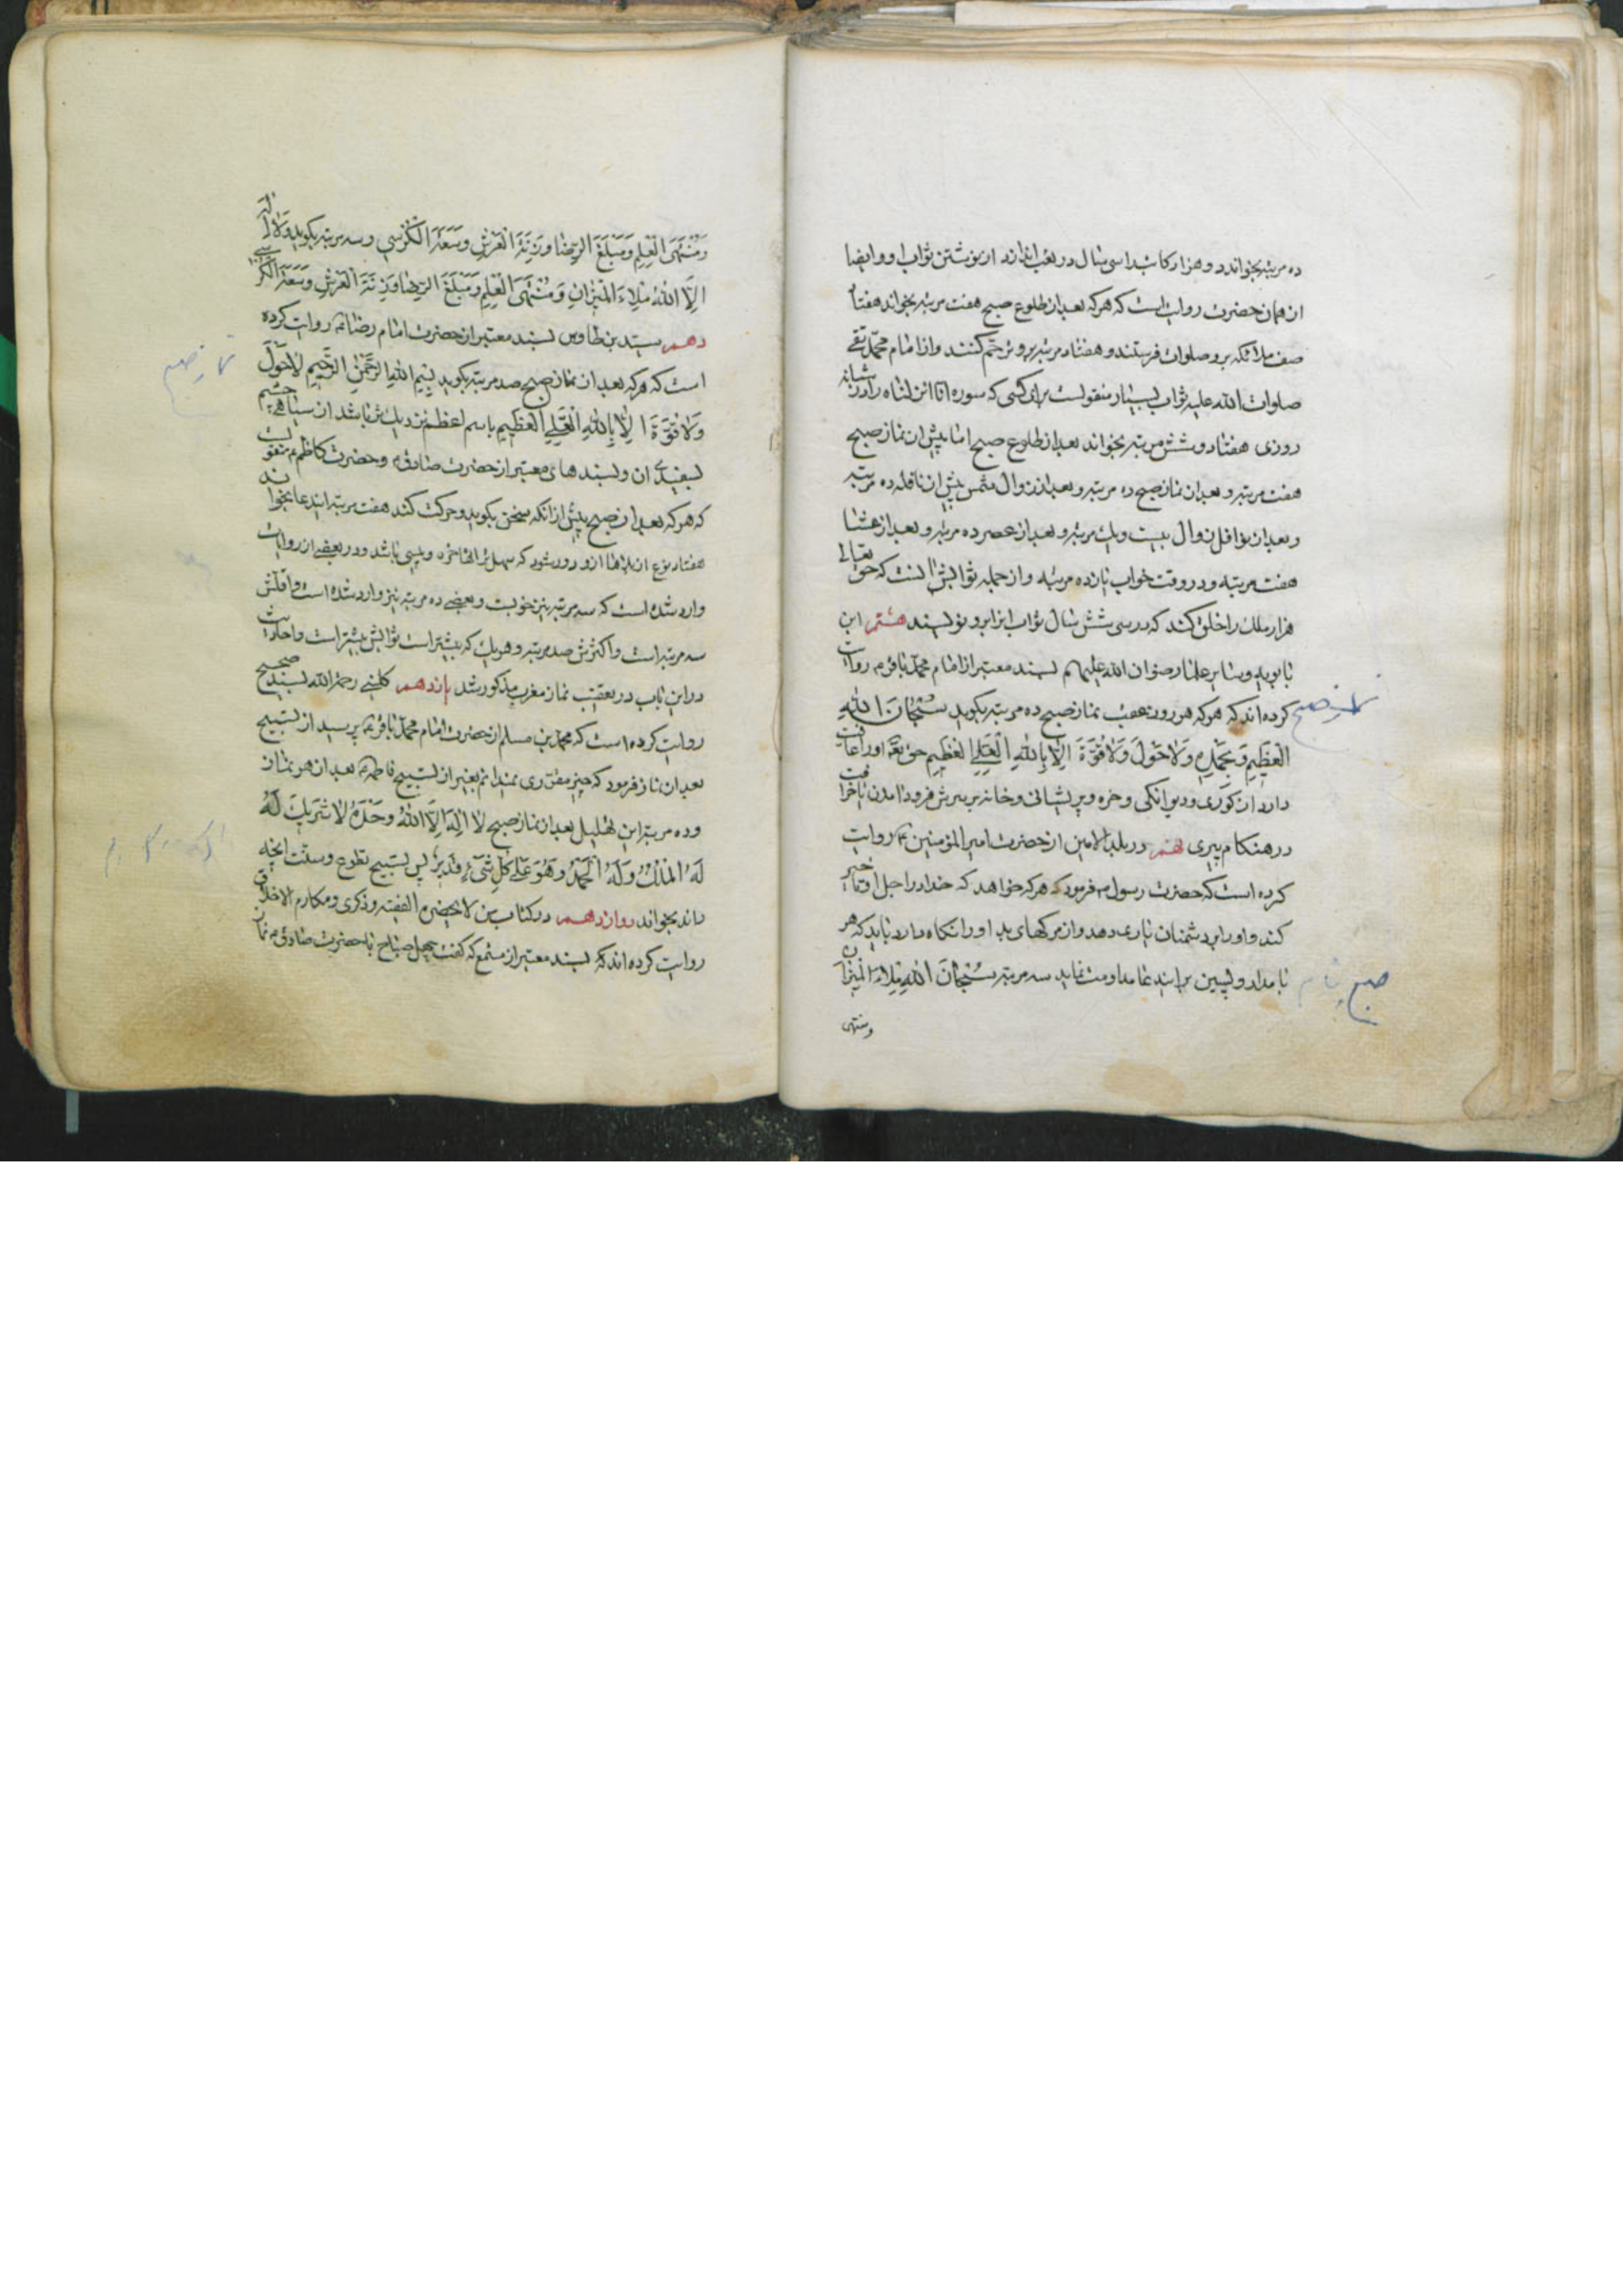 ده مرتبه بخواند دو هزار کاتب را سی سال در تعب اندازد از نوشتن ثواب او و ایضا
از همان حضرت روایت است که هر که بعد از طلوع صبح هفت مرتبه بخواند هفتاد
صف ملائکه برو صلوات فرستند و هفتاد مرتبه برو ترحم کنند و از امام محمد تقی
صلوات الله علیه ثواب بسیار منقولست برای کسی که سوره انا انزلناه را در شبانه
روزی هفتاد و شش مرتبه بخواند بعد از طلوع صبح اما پیش از نماز صبح
هفت مرتبه و بعد از نماز صبح ده مرتبه و بعد از زوال شمس پیش از نافله ده مرتبه
و بعد از نوافل زوال بیست و یک مرتبه و بعد از عصر ده مرتبه و بعد از عشا
هفت مرتبه و در وقت خواب یازده مرتبه و از جمله ثوابش آنست که حق تعالی
هزار ملک را خلق کند که در سی شش سال ثواب این را برو نویسند هشتم ابن
بابویه و سایر علما رضوان الله علیهم بسند معتبر از امام محمد باقر ع روایت
کرده اند که هر که هر روز عقب نماز صبح ده مرتبه بگوید سُبْحَانَ اللهِ
العَظِیمِ وَبِحَمْدِهِ وَلَاحَوْلَ وَلَاقُوَّةَ اِلَّا بِاللهِ العَلِیِّ العَظِیمِ حق تعه او را عافیت
دارد از کوری و دیوانگی و خوره و پریشانی و خانه بر سرش فرود آمدن یا خرافت
در هنکام پیری نهم در بلد الامین از حضرت امیر المؤمنین ع روایت
کرده است که حضرت رسول ص فرمود که هر که خواهد که خدا در اجل او تأخیر
کند و او را بر دشمنان یاری دهد و از مرکهای بد او را نکاه دارد باید که هر
بامداد و پسین براین دعا مداومت نماید سه مرتبه سُبْحَانَ اللهِ مِلاءَ المِیزَانِ
ومنتهی
نماز صبح
صبح
وَمُنْتَهَی العِلمِ وَمَبْلَغَ الرِّضا وَزِنَةَ العَرْشِ وَسَعَةَ الکُرْسِی و سه مرتبه بگوید وَلَا اِلٰهَ
اِلَّا اللهُ مِلاءَ المِیزَانِ وَمُنْتَهَی العِلمِ وَمَبْلَغَ الرِّضا وَزِنَةَ العَرْشِ وَسَعَةَ الکُرْسِی
دهم سید بن طاوس بسند معتبر از حضرت امام رضا ع روایت کرده
است که هر که بعد از نماز صبح صد مرتبه بگوید بِسْمِ اللهِ الرَّحْمٰنِ الرَّحِیمِ لَاحَوْلَ
وَلَا قُوَّةَ اِلَّا بِاللهِ العَلِیِّ العَظِیمِ باسم اعظم نزدیک تر باشد از سیاهی چشم
بسفیدی ان و بسندهای معتبر از حضرت صادق ع و حضرت کاظم ع منقول است
که هر که بعد از صبح پیش از آنکه سخن بگوید و حرکت کند هفت مرتبه ایندعا بخواند
هفتاد نوع از بلاها ازو دور شود که سهل تر آنها خوره و پیسی باشد و در بعضی از روایات
وارد شده است که سه مرتبه نیز خوبست و بعضی ده مرتبه نیز وارد شده است و اقلش
سه مرتبه است و اکثرش صد مرتبه و هر یک که بیشتر است ثوابش بیشتر است و احادیث
در این باب در تعقیب نماز مغرب مذکور شد یازدهم کلینی رحمه الله بسند صحیح
روایت کرده است که محمد بن مسلم از حضرت امام محمد باقر ع پرسید از تسبیح
بعد از نماز فرمود که چیز مقرری نمیدانم بغیر از تسبیح فاطمه ع بعد از هر نماز
و ده مرتبه این تهلیل بعد از نماز صبح لَا اِلٰهَ اِلَّا اللهُ وَحْدَهُ لَا شَرِیكَ لَهُ
لَهُ المُلْكُ وَلَهُ الحَمْدُ وَهُوَ عَلٰی کُلِّ شَیْءٍ قَدِیرٌ پس تسبیح تطوع و سنّت آنچه
داند بخواند دوازدهم در کتاب من لا یحضره الفقیه و ذکری و مکارم الاخلاق
روایت کرده اند که بسند معتبر از مسمع که گفت چهل صباح با حضرت صادق ع نماز
نماز صبح